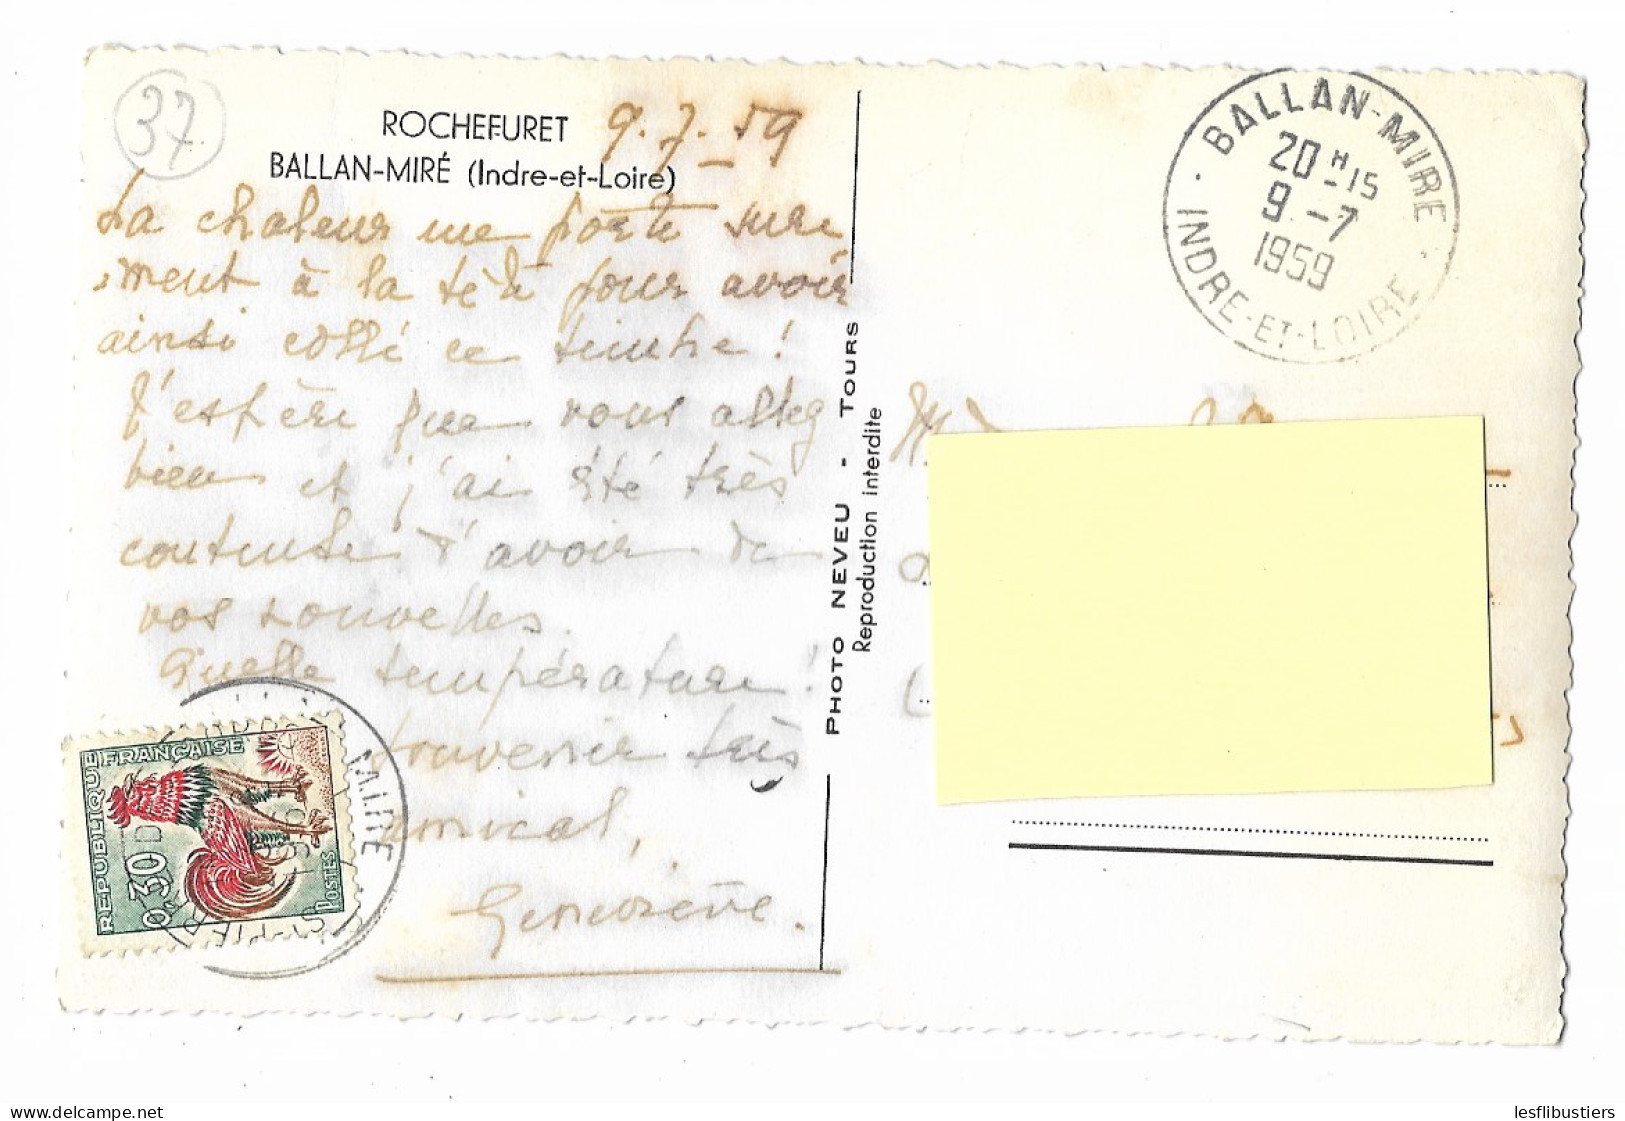 37
ROCHEFURET 9.7.59
BALLAN-MIRÉ (Indre-et-Loire)
La chaleur me porte sure
ment à la tête pour avoir
ainsi collé ce timbre !
J'espère que vous allez
bien et j'ai été très
contente d'avoir de
vos nouvelles.
Quelle température !
souvenir très
amical,
Geneviève.
RÉPUBLIQUE FRANÇAISE
0,30
POSTES
MIRE
PHOTO NEVEU - TOURS
Reproduction interdite
BALLAN-MIRE
20 H -15
9 - 7
1959
INDRE-ET-LOIRE
delcampe.net
lesflibustiers